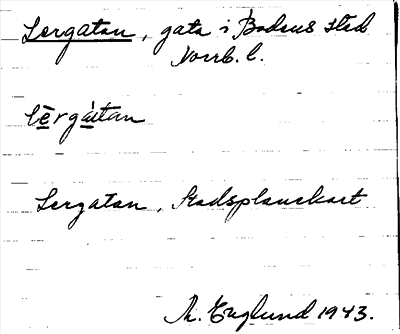 Lergatan, gata i Bodens stad
Norrb. l.
lērgàtan
Lergatan, Stadsplanekart
Th. Englund 1943.